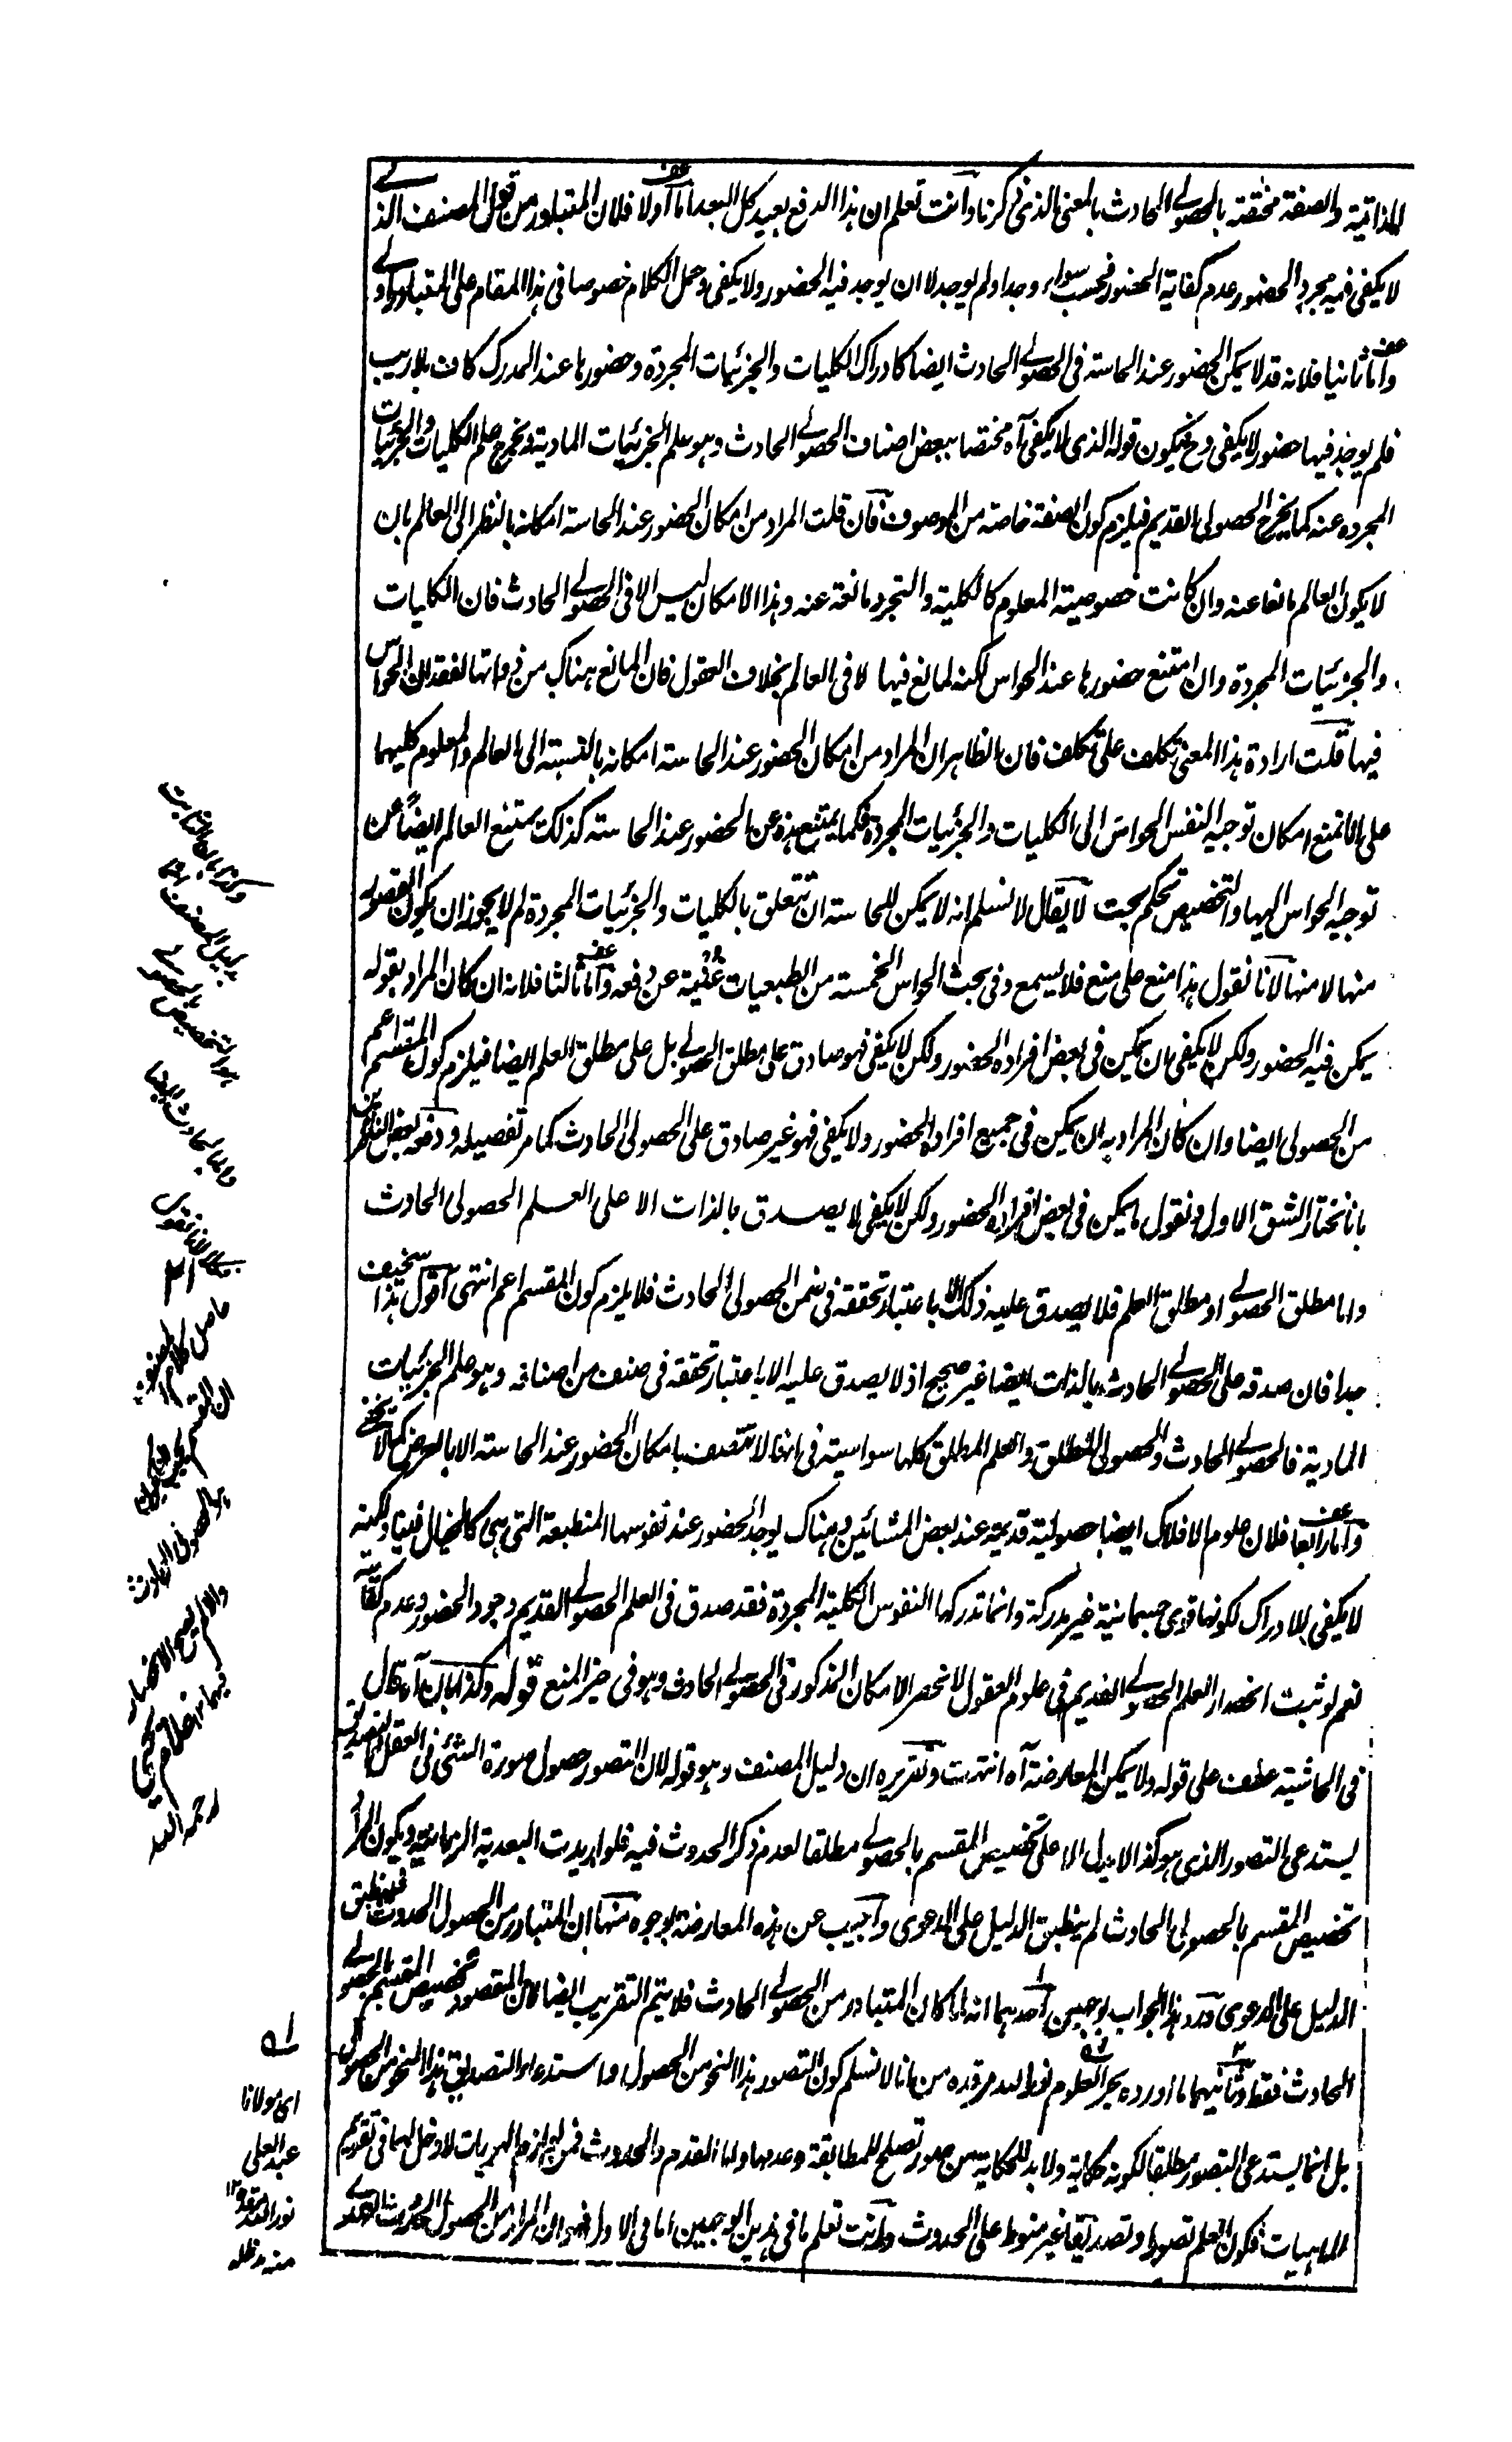 للذاتية والصفة مختصة بالحصولي الحادث بالمعنى الذي ذكرنا وانت تعلم ان هذا الدفع بعيد كل البعد اما اولا فلان المتبادر من قول المصنف الذي
لا يكفي فيه مجرد الحضور عدم كفاية الحضور فحسب سواء وجد اولم يوجد لا ان يوجد فيه الحضور ولا يكفي وحمل الكلام خصوصا في هذا المقام على المتبادر اولى
واما ثانيا فلانه قد لا يمكن الحضور عند الحاسة في الحصولي الحادث ايضا كادراك الكليات والجزئيات المجردة وحضورها عند المدرك كاف بلا ريب
فلم يوجد فيها حضور لا يكفي وح فيكون قوله الذي لا يكفي آه مختصا ببعض اصناف الحصولي الحادث وهو علم الجزئيات المادية ويخرج علم الكليات والجزئيات
المجردة عنه كما يخرج الحصولي القديم فيلزم كون الصفة خاصة من الموصوف فان قلت المراد من امكان الحضور عند الحاسة امكانه بالنظر الى العالم بان
لا يكون العالم مانعا عنه وان كانت خصوصية المعلوم كالكلية والتجرد مانعة عنه وهذا الامكان ليس الا في الحصولي الحادث فان الكليات
والجزئيات المجردة وان امتنع حضورها عند الحواس لكنه لمانع فيها لا في العالم بخلاف العقول فان المانع هناك من ذواتها لفقدان الحواس
فيها قلت ارادة هذا المعنى تكلف على تكلف فان الظاهر ان المراد من امكان الحضور عند الحاسة امكانه بالنسبة الى العالم والمعلوم كليهما
على انا نمنع امكان توجيه النفس الحواس الى الكليات والجزئيات المجردة فكما يمتنع هذه عن الحضور عند الحاسة كذلك يمتنع العالم ايضا عن
توجيه الحواس اليها والتخصيص تحكم بحت لا يقال لا نسلم انه لا يمكن للحاسة ان تتعلق بالكليات والجزئيات المجردة لم لا يجوز ان يكون القصور
منها لا منها لانا نقول هذا منع على منع فلا يسمع وفي بحث الحواس الخمسة من الطبعيات غنية عن دفعه واما ثالثا فلانه ان كان المراد بقوله
يمكن فيه الحضور ولكن لا يكفي ان يمكن في بعض افراده الحضور ولكن لا يكفي فهو صادق على مطلق الحصولي بل على مطلق العلم ايضا فيلزم كون المقسم اعم
من الحصولي ايضا وان كان المراد به ان يمكن في جميع افراده الحضور ولا يكفي فهو غير صادق على الحصولي الحادث كما مر تفصيله ودفعه بعض الناظرين
بانا نختار الشق الاول ونقول ما يمكن في بعض افراده الحضور ولكن لا يكفي لا يصدق بالذات الا على العلم الحصولي الحادث
واما مطلق الحصولي او مطلق العلم فلا يصدق عليه ذلك الا باعتبار تحققه في ضمن الحصولي الحادث فلا يلزم كون المقسم اعم انتهى اقول هذا سخيف
جدا فان صدقه على الحصولي الحادث بالذات ايضا غير صحيح اذ لا يصدق عليه الا باعتبار تحققه في صنف من اصنافه وهو علم الجزئيات
المادية فالحصولي الحادث والحصولي المطلق والعلم المطلق كلها سواسية في انها لا تتصف بامكان الحضور عند الحاسة الا بالعرض كما لا يخفى
واما رابعا فلان علوم الافلاك ايضا حصولية قديمة عند بعض المشائين وهناك يوجد الحضور عند نفوسها المنطبعة التي هي كالخيال فينا ولكنه
لا يكفي للادراك لكونها قوى جسمانية غير مدركة وانما تدركها النفوس الكلية المجردة فقد صدق في العلم الحصولي القديم وجود الحضور وعدم كفايته
نعم لو ثبت انحصار العلم الحصولي القديم في علوم العقول لانحصر الامكان المذكور في الحصولي الحادث وهو في حيز المنع قوله وكذا بان آه قال
في الحاشية عطف على قوله ولا يمكن المعارضة آه انتهت وتقريره ان دليل المصنف وهو قوله لان التصور حصول صورة الشئ في العقل والتصديق
يستدعي التصور الذي هو كذا لا يدل الا على تخصيص المقسم بالحصولي مطلقا لعدم ذكر الحدوث فيه فلو اريدت البعدية الزمانية ويكون المراد
تخصيص المقسم بالحصولي الحادث لم ينطبق الدليل على الدعوى واجيب عن هذه المعارضة بوجوه منها ان المتبادر من الحصول الحدوث فينطبق
الدليل على الدعوى ورد هذا الجواب بوجهين احدهما انه لما كان المتبادر من الحصولي الحادث فلا يتم التقريب ايضا لان المقصود تخصيص المقسم بالحصولي
الحادث فقط وثانيهما ما اورده بحر العلوم نور الله مرقده من انا لا نسلم كون التصور هذا النحو من الحصول واستدعاء التصديق هذا النحو من الحصول
بل انما يستدعي التصور مطلقا لكونه حكاية ولا بد للحكاية من صور تصلح للمطابقة وعدمها واما القدم والحدوث فمن لوازم الهويات لا دخل لهما في تقديم
الماهيات فكون العلم تصورا وتصديقا غير منوط على الحدوث وانت تعلم ما في هذين الوجهين اما في الاول فهو ان المراد من الحصول الحدوث
حاصل كلام المصنف
رحمه الله
اى مولانا
عبد العلي
نور الله مرقده ١٢
منه مد ظله